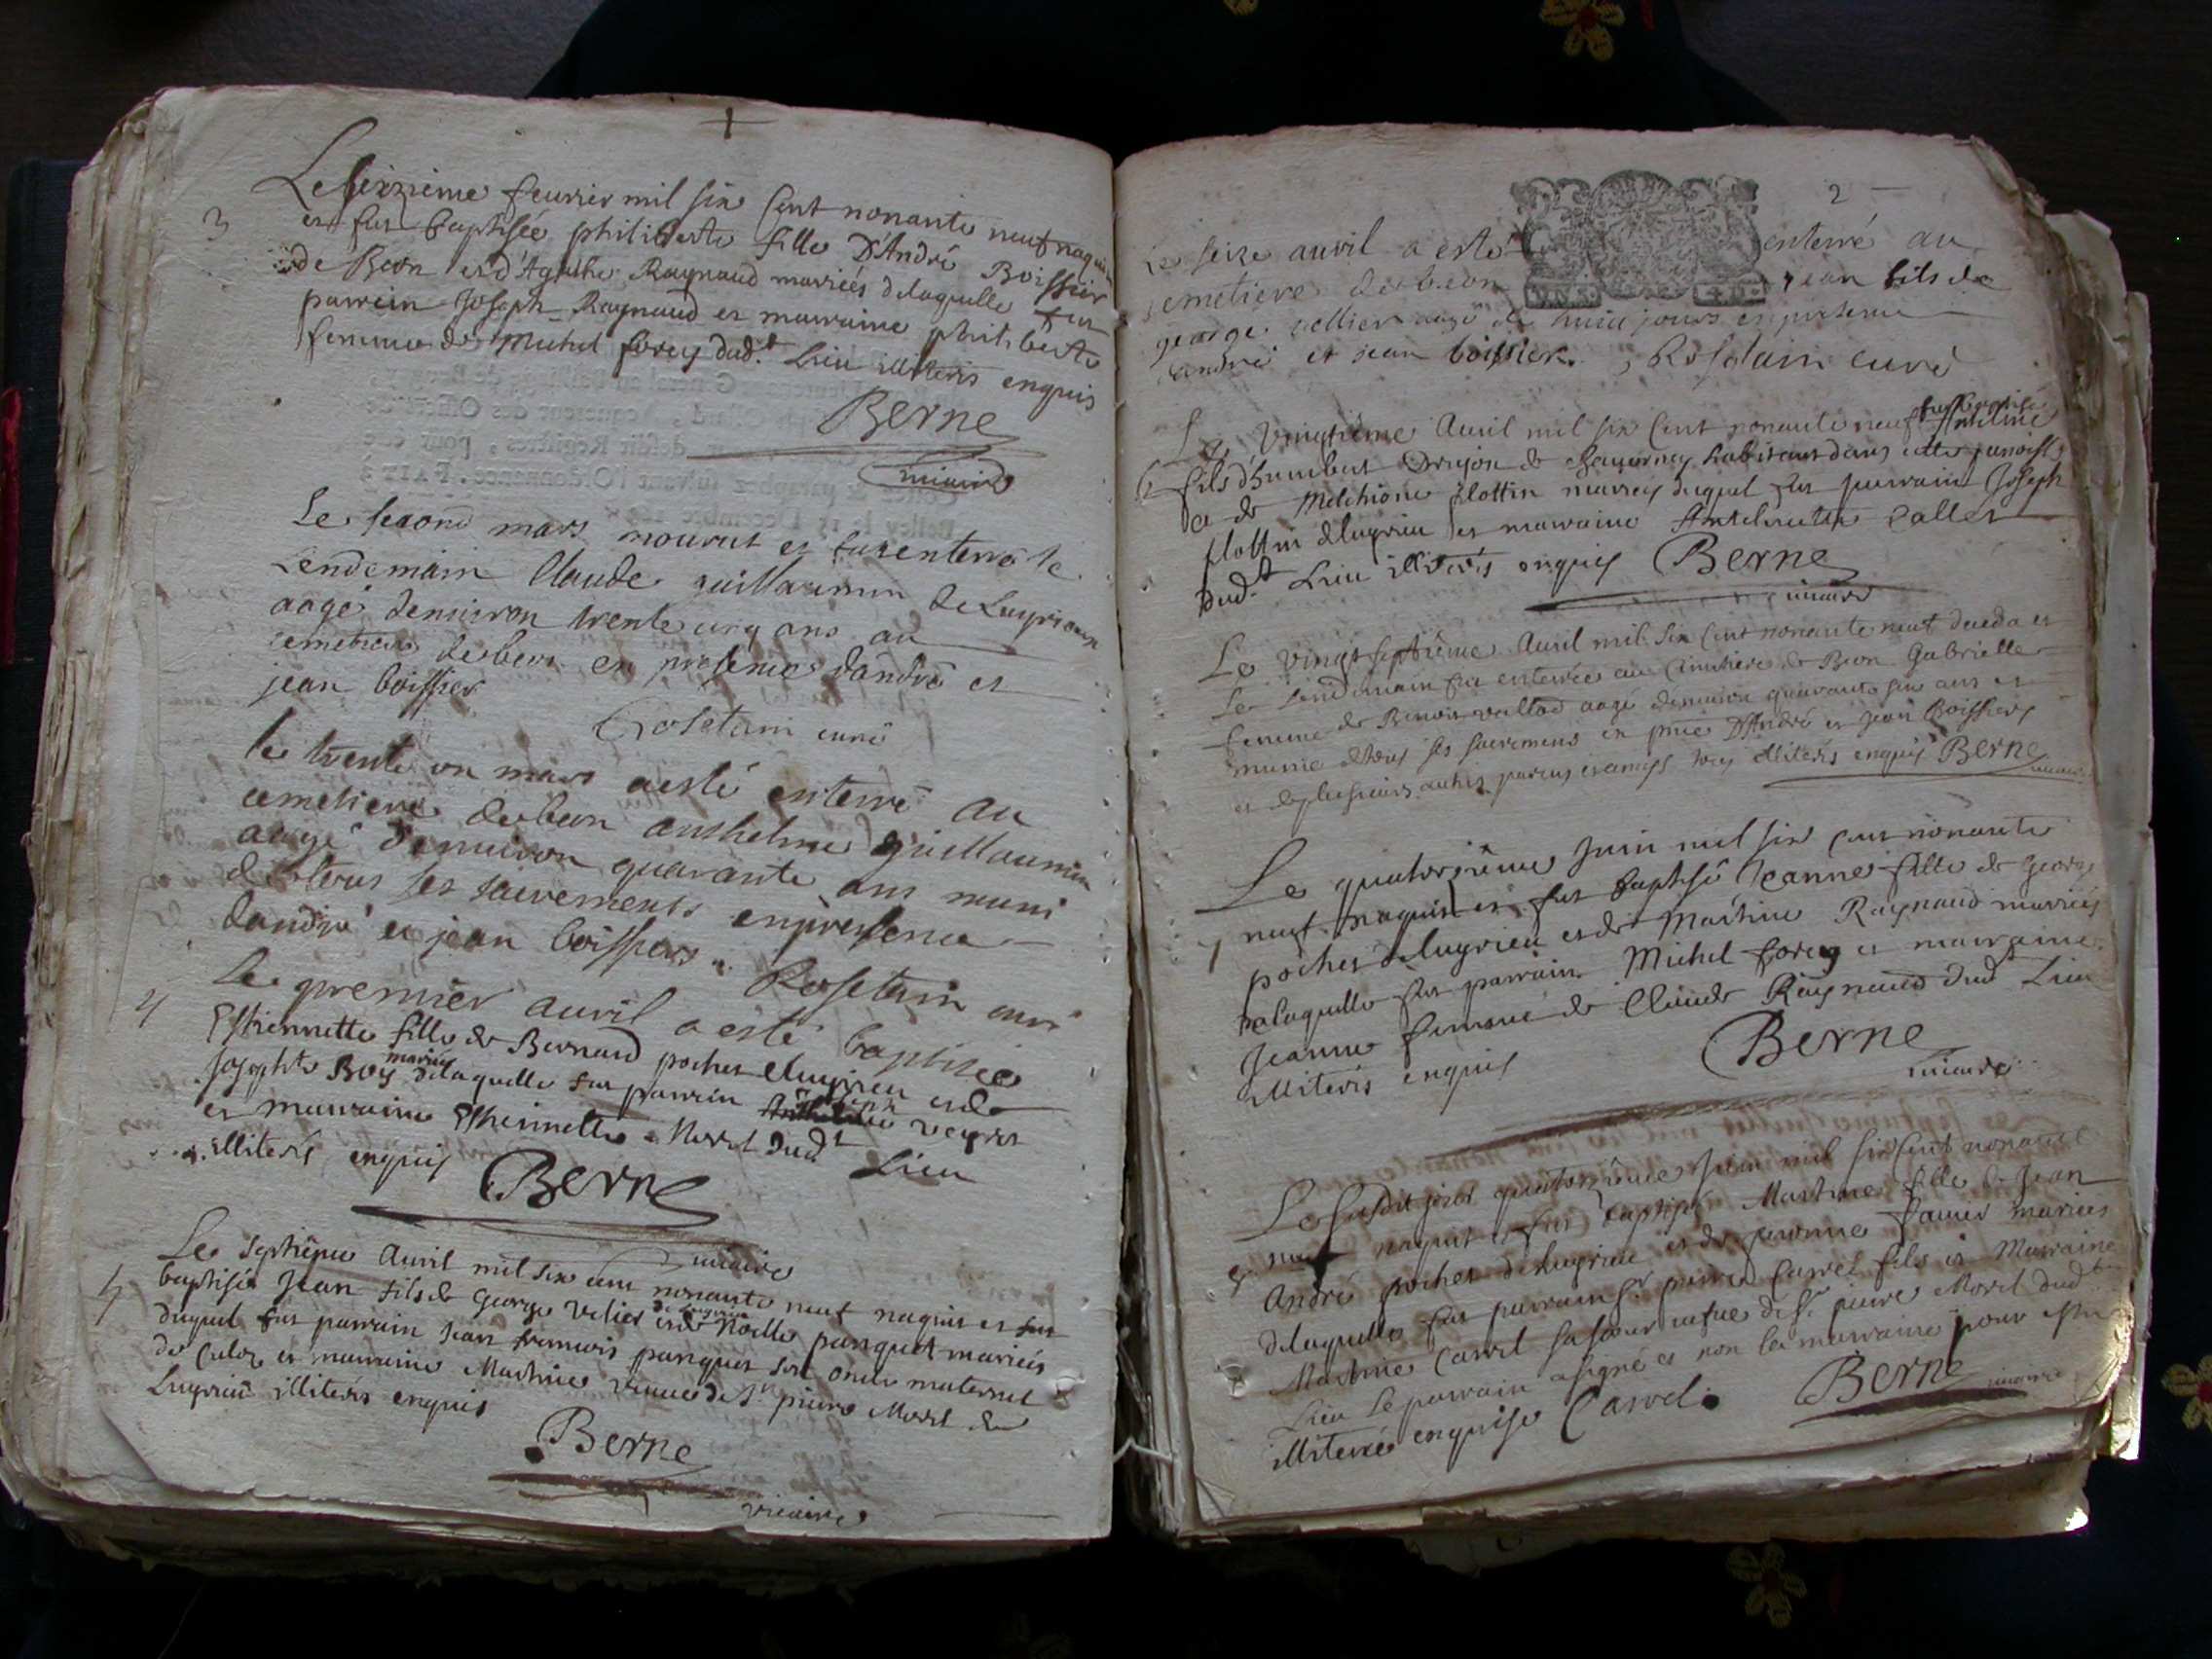 Le seizzieme feurier mil six Cent nonante neuf naquit
3
et fut baptisée philiberte fille D'André Boissier
de Beon et d'Agathe Raynaud mariés delaquelle fut
parrein Joseph Raynaud et marraine philiberte
femme de Michel forey dud.t Lieu illiterés enquis
Berne
vicaire
Le second mars mourut et fut enterré le
Lendemain Claude guillaumin de Luyrieux
aagé denuiron trente cinq ans au
cemetiere de beon en presence dandré et
jean boissier
Rosetain curé
le trente un mars a esté enterré au
cemetiere de beon anthelme guillaumin
aagé denuiron quarante ans muni
de tous ses sacrements en presence
dandré et jean boissiers. Rosetain curé
Le premier auril a esté baptisée
4
Estiennette fille de Bernard pochet de Luyrieu et de
Josephte Boy mariés delaquelle fut parrein veyret
et marraine Estiennette Morel dud.t Lieu
illiterés enquis
Berne
vicaire
Le septième Auril mil six cent nonante neuf naquit et fut
5
baptisé Jean fils de George Velier de Luyrieu et de Noelle panquet mariés
duquel fut parrain Jean francois panquet son oncle maternel
de Culoz et marraine Martine veuue de Sr. pierre Morel de
Luyrieu illiterés enquis
Berne
vicaire
2
Le seize auril a esté enterré au
cemetiere de beon jean fils de
george vellier aagé de huit jours en presence
dandré et jean boissier. Rosetain curé
Le vingtième Auril mil six Cent nonante neuf fut baptisé Antelme
6
fils d'humbert Drujon de habitant dans cette paroisse
et de Melchione flottin mariés duquel fut parrain Joseph
flottin de Luyrieu et marraine Anthelmette Callet
dud.t Lieu illiterés enquis Berne
vicaire
Le vingt septième Auril mil six Cent nonante neuf deceda et
le lendemain fut enterrée au Cimitiere de Beon Gabrielle
femme de Benoit vullod aagé denuiron quarante six ans et
munie de tous ses sacremens en pnce D'André et Jean Boissiers
et de plusieurs autres parens et amys tous illiterés enquis Berne
vicaire
Le quatorzième Juin mil six cent nonante
7
neuf naquit et fut baptisé Jeanne fille de George
pochet de Luyrieu et de Martine Raynaud mariés
delaquelle fut parrain Michel forey et marraine
Jeanne femme de Claude Raynaud dud.t Lieu
illiterés enquis
Berne
vicaire
Le susdit jour quatorzième Juin mil six Cent nonante
8
neuf naquit et fut baptisé Martine fille de Jean
André pochet de Luyrieu et de peronne mariés
delaquelle fut parrain Sr. pierre Carrel fils et Marraine
Martine Carrel sa soeur vefue de Sr. pierre Morel dud.t
Lieu Le parrain a signé et non la marraine pour estre
illiterée enquise Carrel. Berne
vicaire